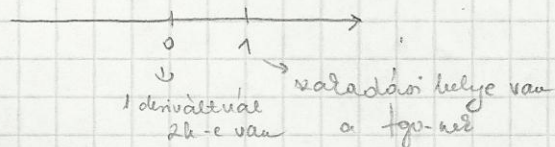 0 1
1 deriváltnál
2h-e van
szaladási helye van
a fgv-nek